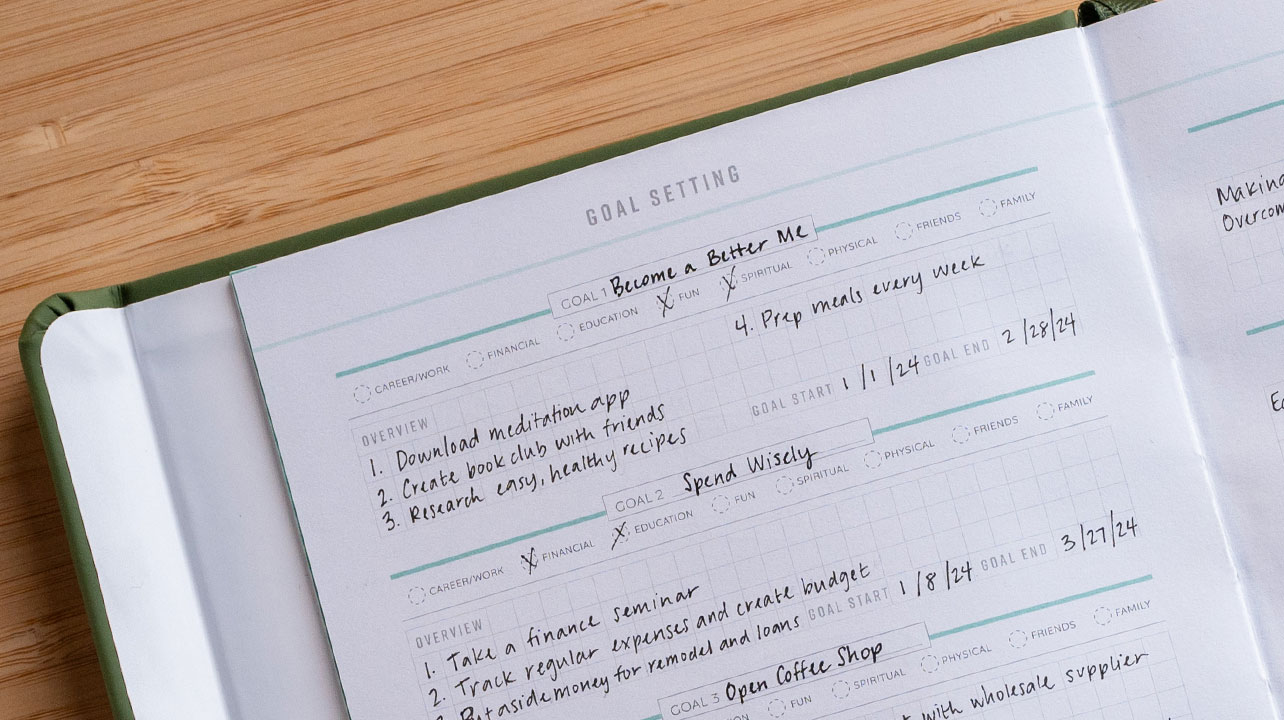 GOAL SETTING
GOAL 1 Become a Better Me
CAREER/WORK FINANCIAL EDUCATION FUN SPIRITUAL PHYSICAL FRIENDS FAMILY
OVERVIEW
1. Download meditation app
2. Create book club with friends
3. Research easy, healthy recipes
4. Prep meals every week
GOAL START 1/1/24 GOAL END 2/28/24
GOAL 2 Spend Wisely
CAREER/WORK FINANCIAL EDUCATION FUN SPIRITUAL PHYSICAL FRIENDS FAMILY
OVERVIEW
1. Take a finance seminar
2. Track regular expenses and create budget
Put aside money for remodel and loans
GOAL START 1/8/24 GOAL END 3/27/24
GOAL 3 Open Coffee Shop
FUN SPIRITUAL PHYSICAL FRIENDS FAMILY
with wholesale supplier
Making